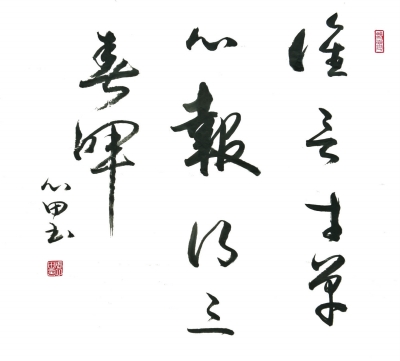 誰言寸草
心報得三
春暉
心田書